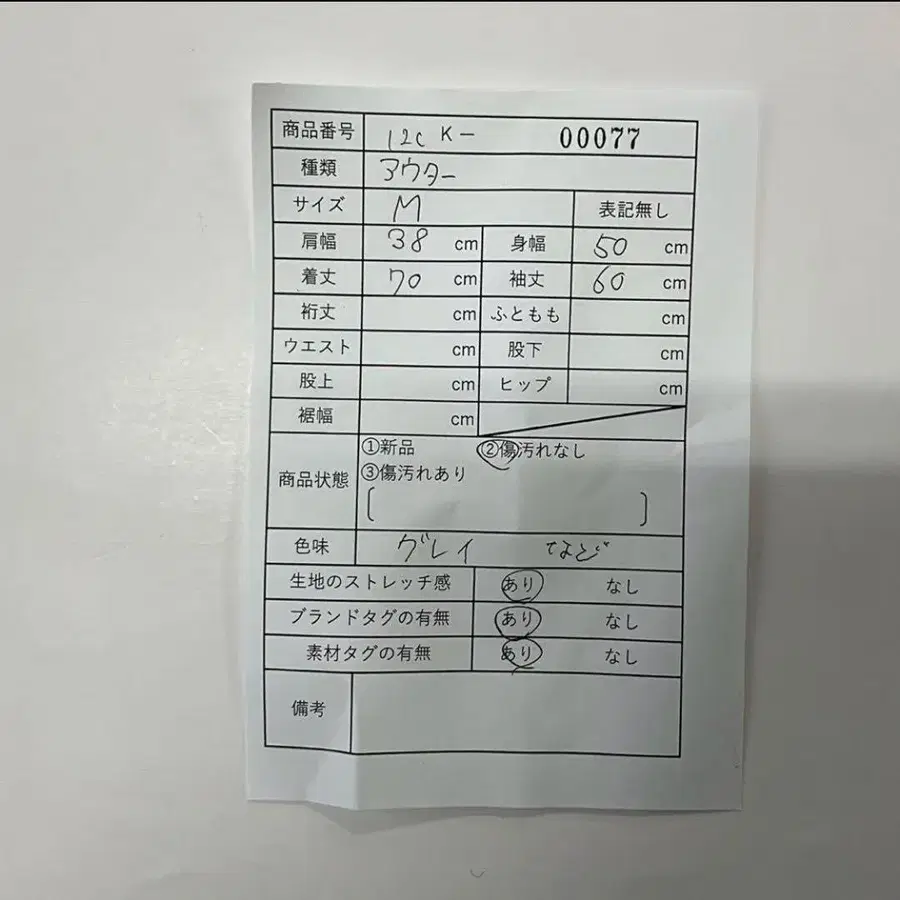 商品番号 12c K- 00077
種類 アウター
サイズ M 表記無し
肩幅 38 cm 身幅 50 cm
着丈 70 cm 袖丈 60 cm
裄丈 cm ふともも cm
ウエスト cm 股下 cm
股上 cm ヒップ cm
裾幅 cm
商品状態 ①新品 ②傷汚れなし
③傷汚れあり
[ ]
色味 グレイ など
生地のストレッチ感 あり なし
ブランドタグの有無 あり なし
素材タグの有無 あり なし
備考